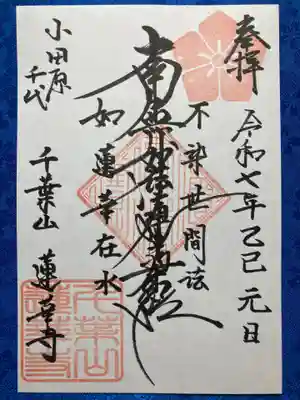 奉拝
令和七年乙巳 元日
不染世間法
南無妙法蓮華経
如蓮華在水
小田原
千代
千葉山 蓮華寺